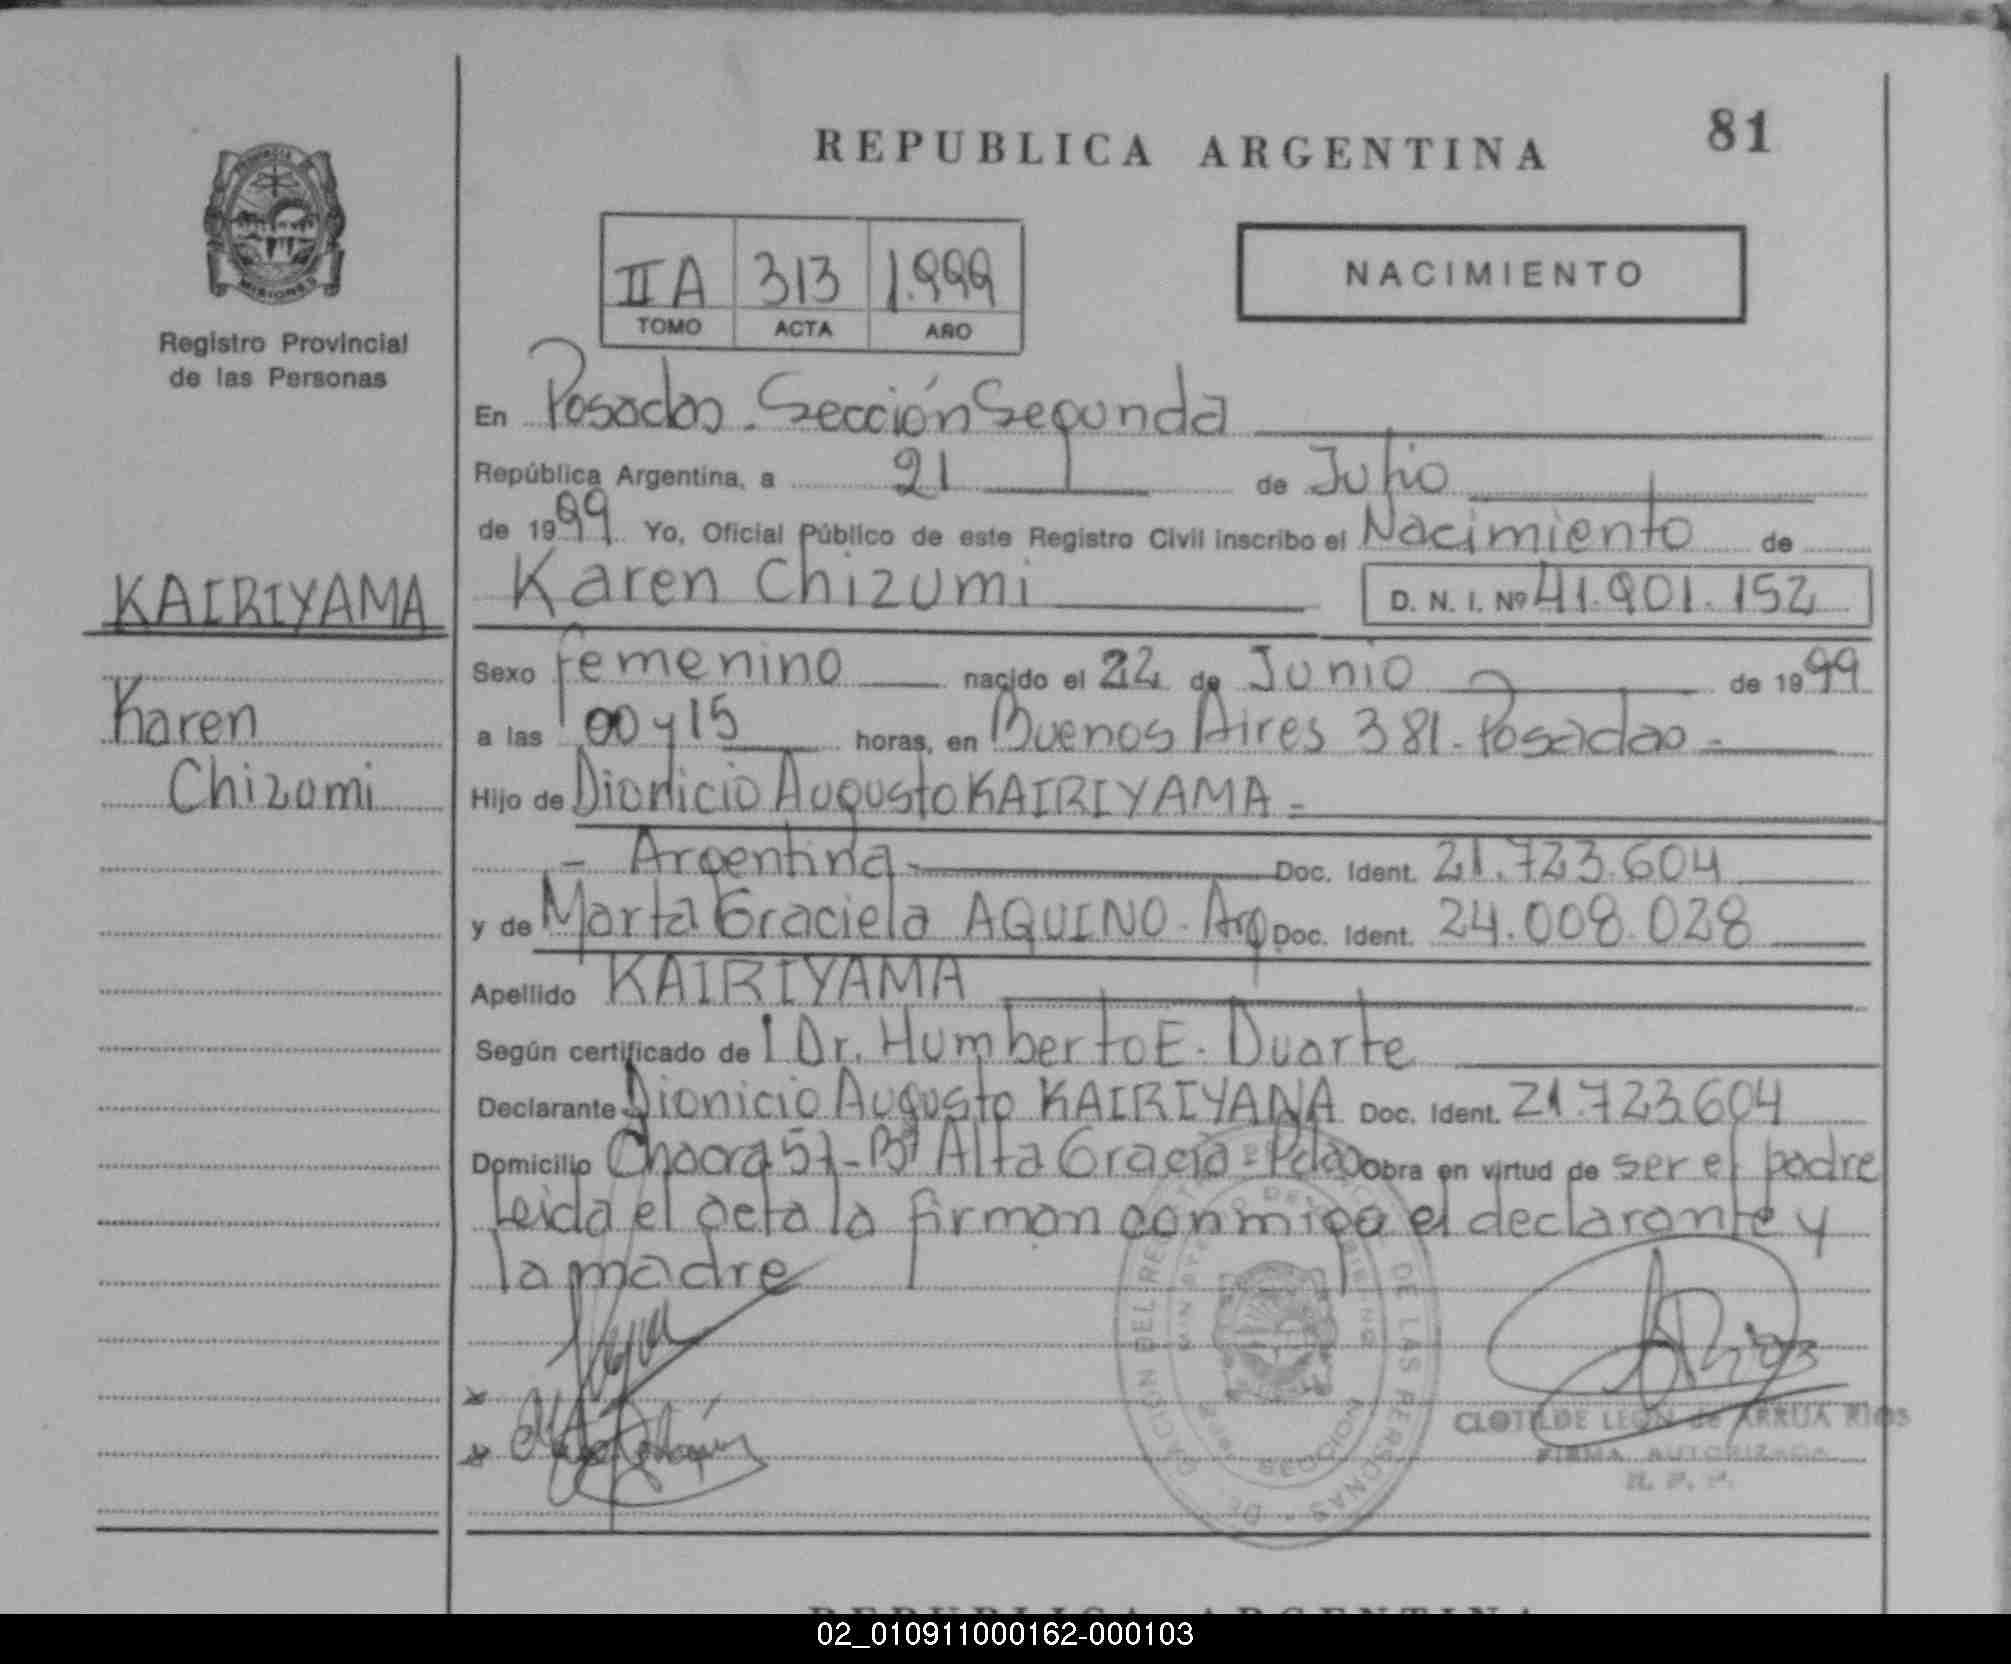 REPUBLICA ARGENTINA
81
PROVINCIA
MISIONES
Registro Provincial
de las Personas
II A 313 1.999
TOMO ACTA AÑO
NACIMIENTO
En Posadas. Sección Segunda
República Argentina, a 21 de Julio
de 1999 Yo, Oficial Público de este Registro Civil inscribo el Nacimiento de
Karen Chizumi D. N. I. Nº 41.901.152
KAIRIYAMA
Karen
Chizumi
Sexo femenino nacido el 22 de Junio de 1999
a las 00 y 15 horas, en Buenos Aires 381 - Posadas -
Hijo de Dionicio Augusto KAIRIYAMA =
- Argentina - Doc. Ident. 21.723.604
y de Marta Graciela AQUINO - Arg Doc. Ident. 24.008.028
Apellido KAIRIYAMA
Según certificado de l Dr. Humberto E. Duarte
Declarante Dionicio Augusto KAIRIYANA Doc. Ident. 21.723.604
Domicilio Chacra 57 - Bº Alta Gracia - Pdas Obra en virtud de ser el padre
Leida el acta la firman conmigo el declarante y
la madre
DE LAS PERSONAS
CLOTILDE LEON de ARRUA RIOS
FIRMA AUTORIZADA
R. P. P.
REPUBLICA ARGENTINA
02_010911000162-000103